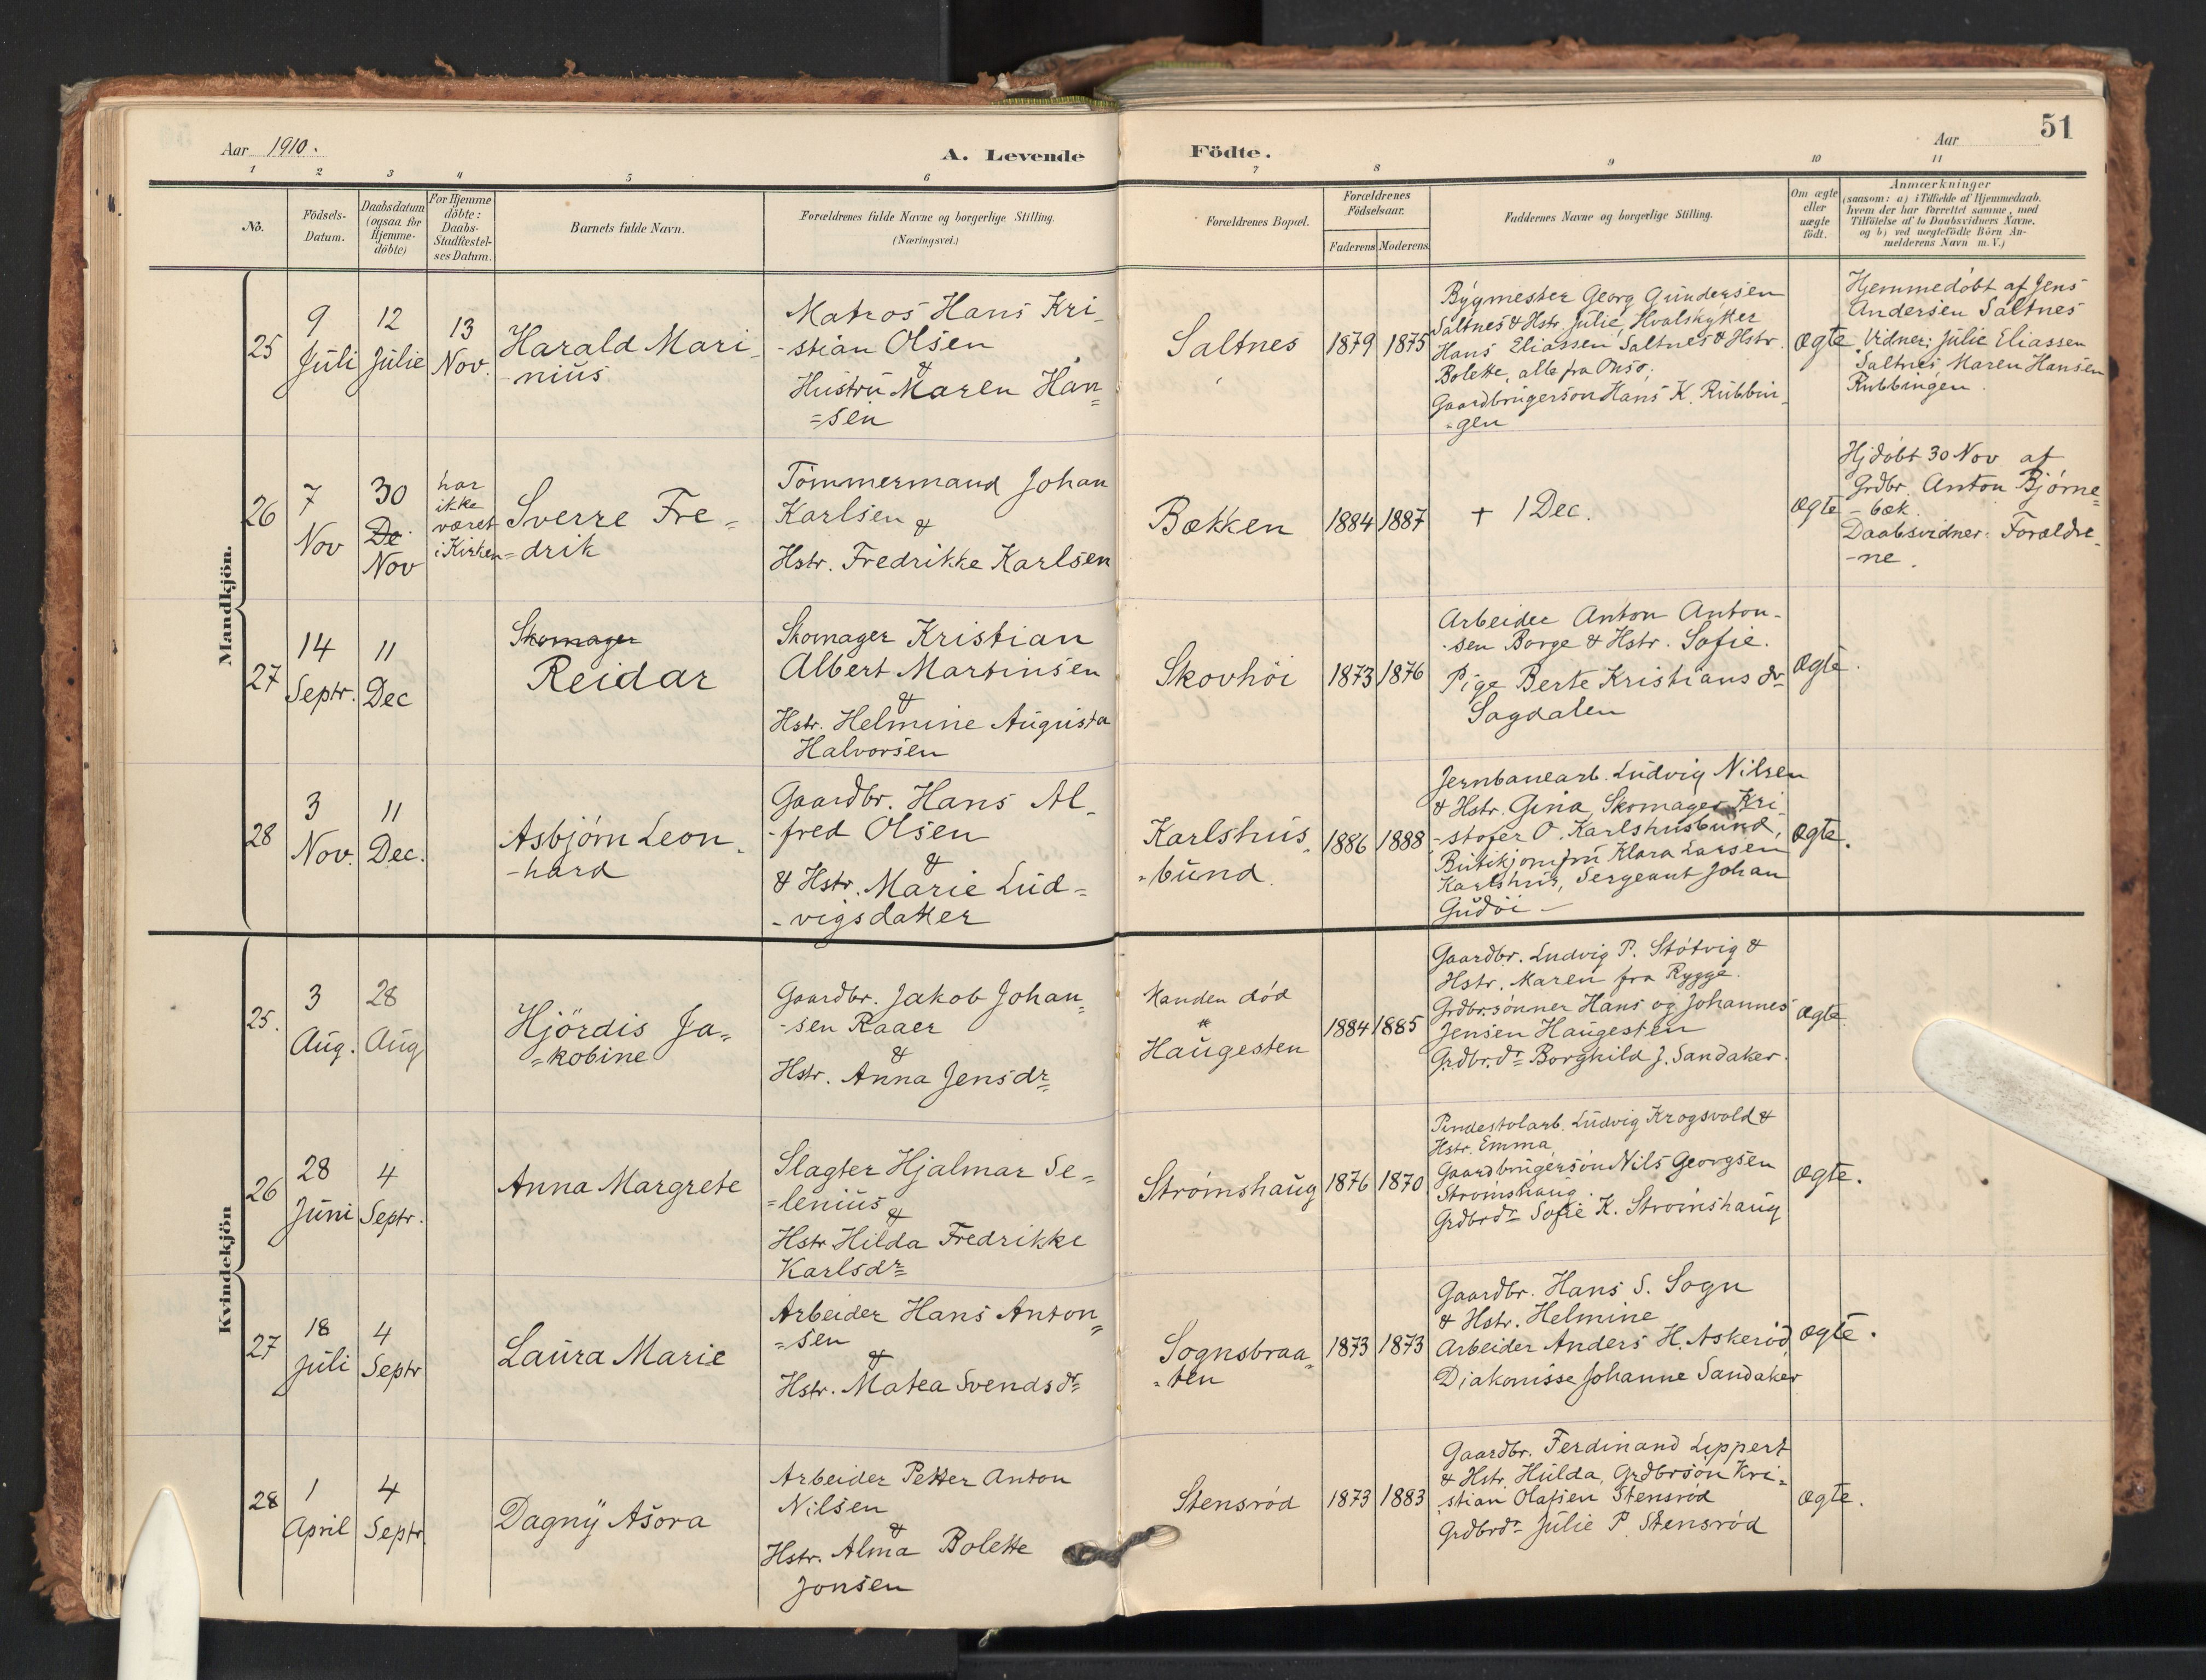 Aar 1910.
A. Levende
Födte.
Aar
51
1 2 3 4 5 6 7 8 9 10 11
No.
Födsels-
Datum.
Daabsdatum
(ogsaa for
Hjemme-
döbte)
For Hjemme
döbte:
Daabs-
Stadfæstel-
ses Datum.
Barnets fulde Navn.
Forældrenes fulde Navne og borgerlige Stilling.
(Næringsvei.)
Forældrenes Bopæl.
Forældrenes
Födselsaar.
Faderens
Moderens.
Faddernes Navne og borgerlige Stilling.
Om ægte
eller
uægte
födt.
Anmærkninger
(saasom: a) i Tilfælde af Hjemmedaab,
hvem der har forrettet samme, med
Tilföielse af to Daabsvidners Navne,
og b) ved uægtefödte Börn An-
melderens Navn m. V.)
Mandkjön.
25
9
Juli
12
Julie
13
Nov.
Harald Mari-
-nius
Matros Hans Kri-
-stian Olsen
&
Hustru Maren Han=
=sen
Saltnes
1879
1875
Bygmester Georg Gundersen
Saltnes & Hstr. Julie, Hvalskytter
Hans Eliassen Saltnes & Hstr.
Bolette, alle fra Onsø;
Gaardbrugersøn Hans K. Rubbin-
-gen
Ægte
Hjemmedøbt af Jens
Andersen Saltnes
Vidner: Julie Eliassen
Saltnes, Maren Hansen
Rubbingen.
26
7
Nov
30
De
Nov
har
ikke
været
i Kirken
Sverre Fre=
=drik
Tømmermand Johan
Karlsen &
Hstr. Fredrikke Karlsen
Bækken
1884
1887
+ 1 Dec.
Ægte
Hjdøbt 30 Nov af
Grdbr. Anton Bjørne=
-bæk.
Daabsvidner: Forældre-
-ne.
27
14
Septr.
11
Dec
Skomager
Reidar
Skomager Kristian
Albert Martinsen
&
Hstr. Helmine Augusta
Halvorsen
Skovhöi
1873
1876
Arbeider Anton Anton-
-sen Borge & Hstr. Sofie.
Pige Berte Kristians dr
Sagdalen
Ægte.
28
3
Nov.
11
Dec.
Asbjørn Leon-
-hard
Gaardbr. Hans Al-
-fred Olsen
&
& Hstr. Marie Lud=
-vigsdatter
Karlshus-
-bund.
1886
1888
Jernbanearb. Ludvig Nilsen
& Hstr. Gina, Skomager Kri-
-stofer O. Karlshusbund,
Butikjomfru Klara Larsen
Karlshus, Sergeant Johan
Gudöi
Ægte.
Kvindekjön
25.
3
Aug.
28
Aug
Hjördis Ja=
=kobine
Gaardbr. Jakob Johan=
-sen Raaer
&
Hstr. Anna Jensdr
Manden død
Haugesten
1884
1885
Gaardbr. Ludvig P. Støtvig &
Hstr. Maren fra Rygge.
Grdbr.sønner Hans og Johannes
Jensen Haugesten
Grdbr.dr Borghild J. Sandaker.
Ægte.
26
28
Juni
4
Septr.
Anna Margrete
Slagter Hjalmar Se=
=lenius
&
Hstr Hilda Fredrikke
Karlsdr
Strømshaug
1876
1870
Pindestolarb. Ludvig Krogsvold &
Hstr. Emma,
Gaardbrugersøn Nils Georgsen
Strømshaug.
Grdbrdr Sofie K. Strømshaug
Ægte.
27
18
Juli
4
Septr
Laura Marie
Arbeider Hans Anton=
=sen
&
Hstr. Matea Svendsdr
Sognsbraa=
-ten
1873
1873
Gaardbr. Hans S. Sogn
& Hstr. Helmine
Arbeider Anders H. Askerød
Diakonisse Johanne Sandaker
Ægte.
28
1
April
4
Septr.
Dagny Asora
Arbeider Petter Anton
Nilsen
&
Hstr. Alma Bolette
Jonsen
Stensrød
1873
1883
Gaardbr. Ferdinand Leppert
& Hstr. Hulda, Grdbrsøn Kri=
stian Olafsen Stensrød
Grdbrdr Julie P. Stensrød
Ægte.